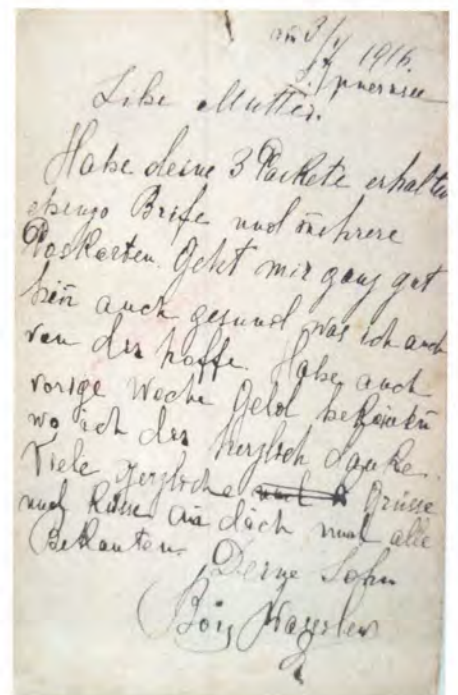 1916.
Libe Mutter.
Habe deine 3 Packete erhalten
ebenzo Brife und mehrere
Poskarten. Geht mir ganz gut
bin auch gesund was ich auch
von dir hoffe. Habe auch
vorige Woche Geld bekomen
wo ich dir herzlich danke.
Viele herzliche Grüsse
und Küsse an dich und alle
Bekanten. Deine Sohn